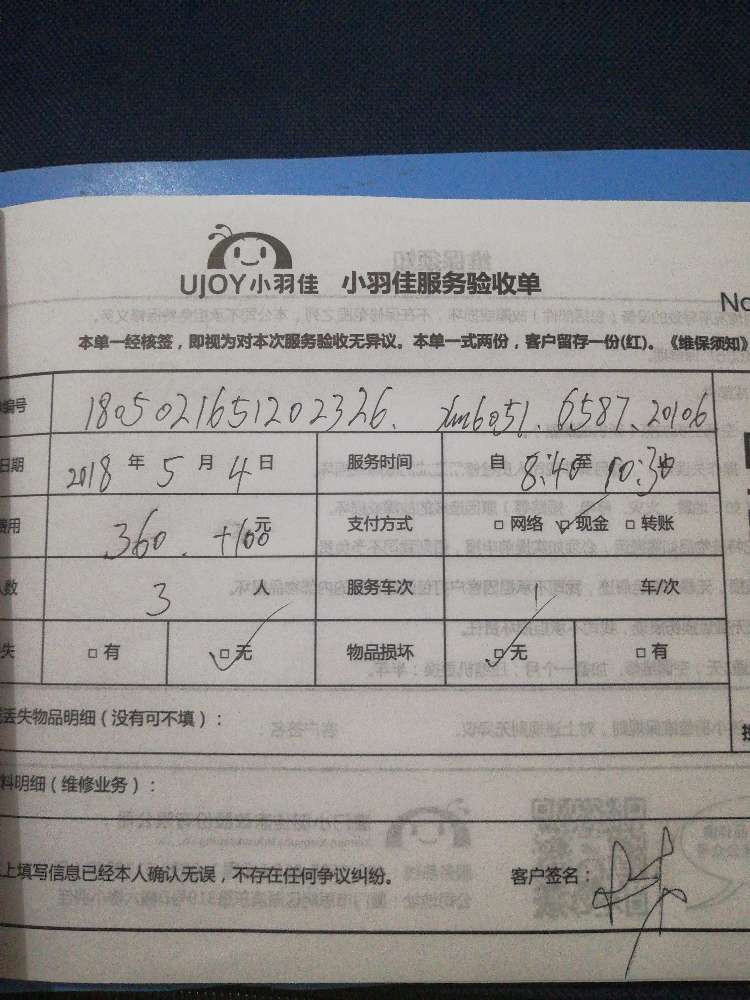 UJOY小羽佳 小羽佳服务验收单
No
本单一经核签，即视为对本次服务验收无异议。本单一式两份，客户留存一份(红)。《维保须知》
编号 1805021651202326. xm6051. 6587. 20106
日期 2018 年 5 月 4 日 服务时间 自 8:40 至 10:30
费用 360. +100 元 支付方式 □ 网络 □ 现金 □ 转账
人数 3 人 服务车次 1 车/次
失 □ 有 □ 无 物品损坏 □ 无 □ 有
丢失物品明细（没有可不填）：
料明细（维修业务）：
上填写信息已经本人确认无误，不存在任何争议纠纷。 客户签名：